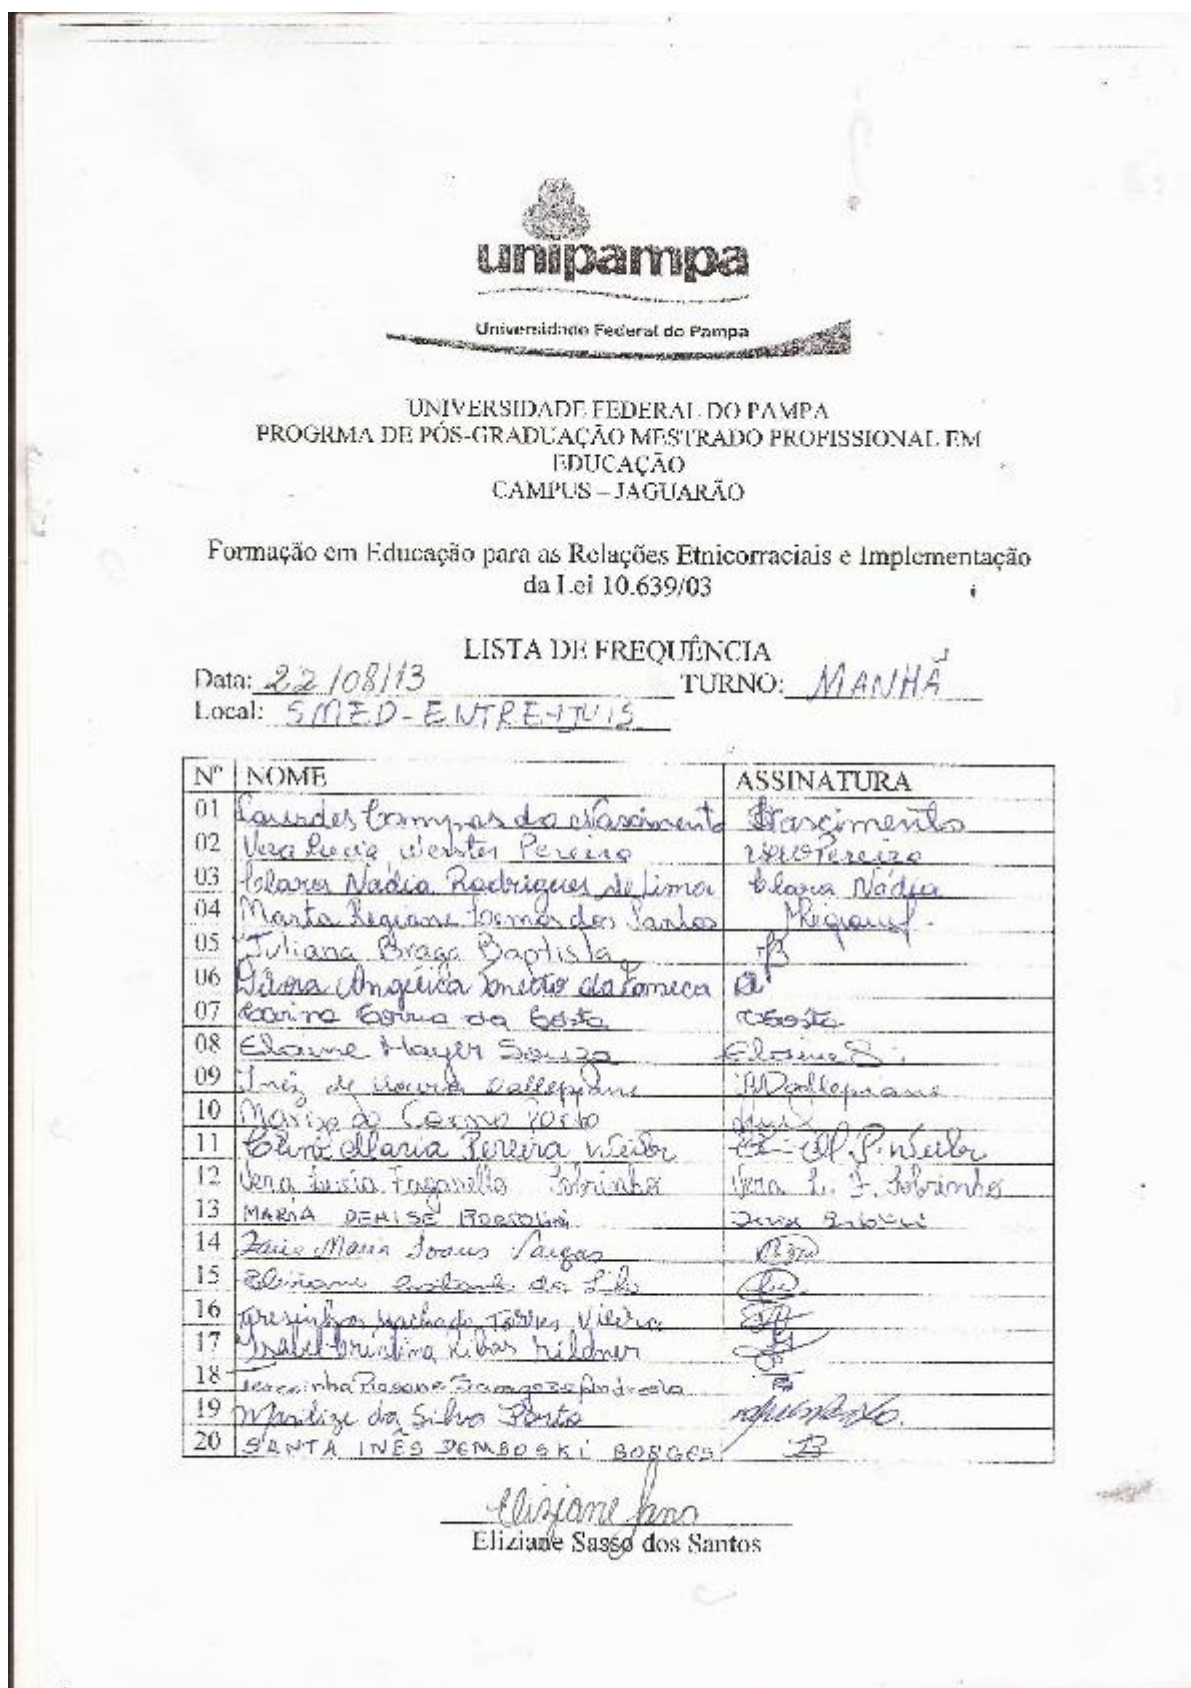 unipampa
Universidade Federal do Pampa
UNIVERSIDADE FEDERAL DO PAMPA
PROGRMA DE PÓS-GRADUAÇÃO MESTRADO PROFISSIONAL EM
EDUCAÇÃO
CAMPUS – JAGUARÃO
Formação em Educação para as Relações Etnicorraciais e Implementação
da Lei 10.639/03
LISTA DE FREQUÊNCIA
Data: 22/08/13 TURNO: MANHÃ
Local: SMED - ENTRE-IJUIS
Nº NOME ASSINATURA
01 Lourdes Campos do Nascimento Nascimento
02 Vera Lucia Werster Pereira Pereira
03 Clara Nádia Rodrigues de Lima Clara Nádia
04 Marta Regiane Lemos dos Santos
05 Juliana Braga Baptista
06 Angélica da Fonseca
07 Carine Correa da Costa Costa
08 Elaine Mayer Souza Elaine S.
09 Inêz de Moura Dallepiane Dallepiane
10 Mariza do Carmo Porto
11 Maria Pereira Weiler M. P. Weiler
12 Vera Lucia Faganello Sobrinho Vera L. F. Sobrinho
13 MARIA DENISE
14 Maria Vargas
15 da Silva
16 Teresinha Machado Torres Vieira
17 Isabel Cristina Ribas Hildner
18 Terezinha Rosane
19 Marilize da Silva Porto
20 SANTA INÊS DEMBOSKI BORGES
Eliziane Sasso
Eliziane Sasso dos Santos